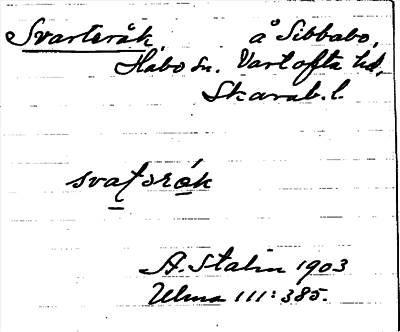 Svarteråk, å Sibbabo,
Håbo sn. Vartofta hd,
Skarab. l.
svatorǻk
A. Stalin 1903
Ulma 111:385.